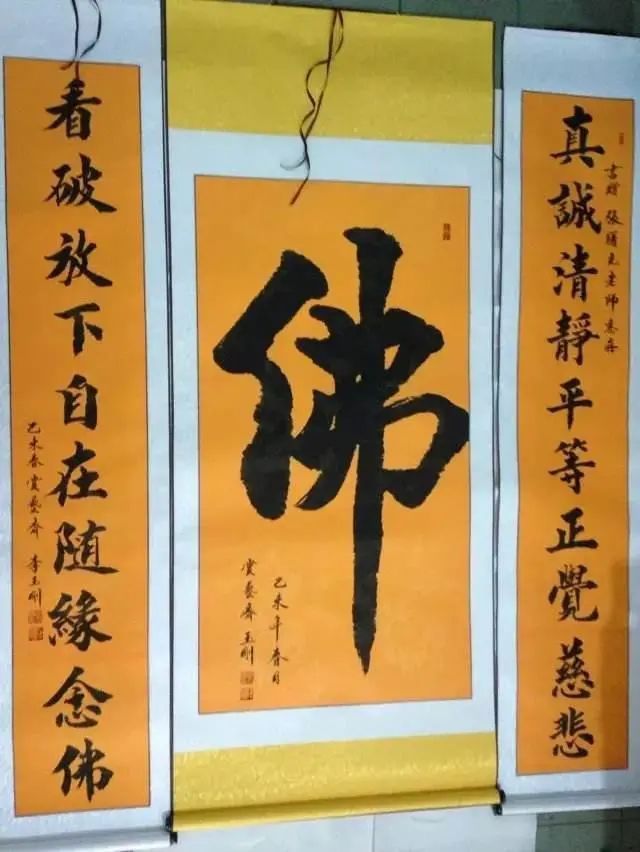 真誠清靜平等正覺慈悲
書贈 張
老師惠存
佛
乙未年春月
賞藝齋 玉刚
看破放下自在随緣念佛
乙未春賞藝齋 李玉刚